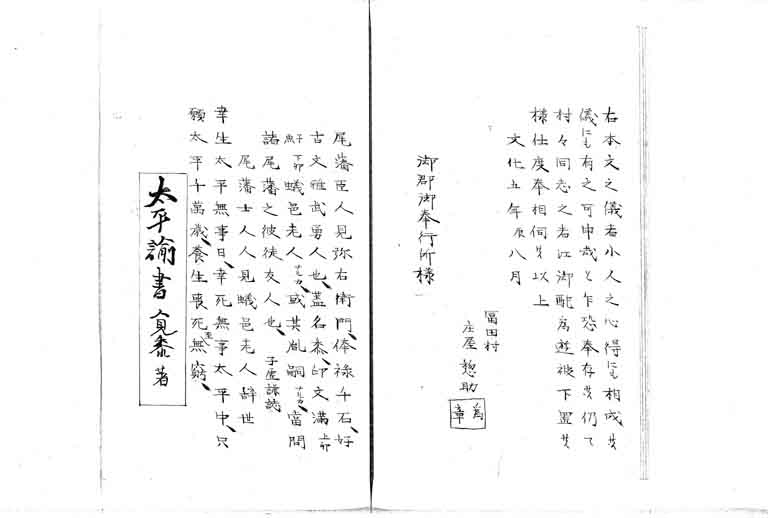 右本文之儀者小人之心得にも相成候
儀にも有之可申哉と乍恐奉存候仍て
村々同志之者江御配為遊被下置候
様仕度奉相伺候以上
文化五年辰八月
冨田村
庄屋 惣助
為章
御郡御奉行所様
尾藩臣人見弥右衛門、俸禄千石、好
古文雅武勇人也、蓋名黍、印文満 上印
子魚 下印 蟻邑老人 カ、或其胤嗣 カ、富問
諸尾藩之彼徒友人也、 子虚謙誌
尾藩士人人見蟻邑老人辞世
幸生太平無事日、幸死無事太平中、只
願太平千萬歳、養生喪死至無窮、
太平諭書 見黍 著